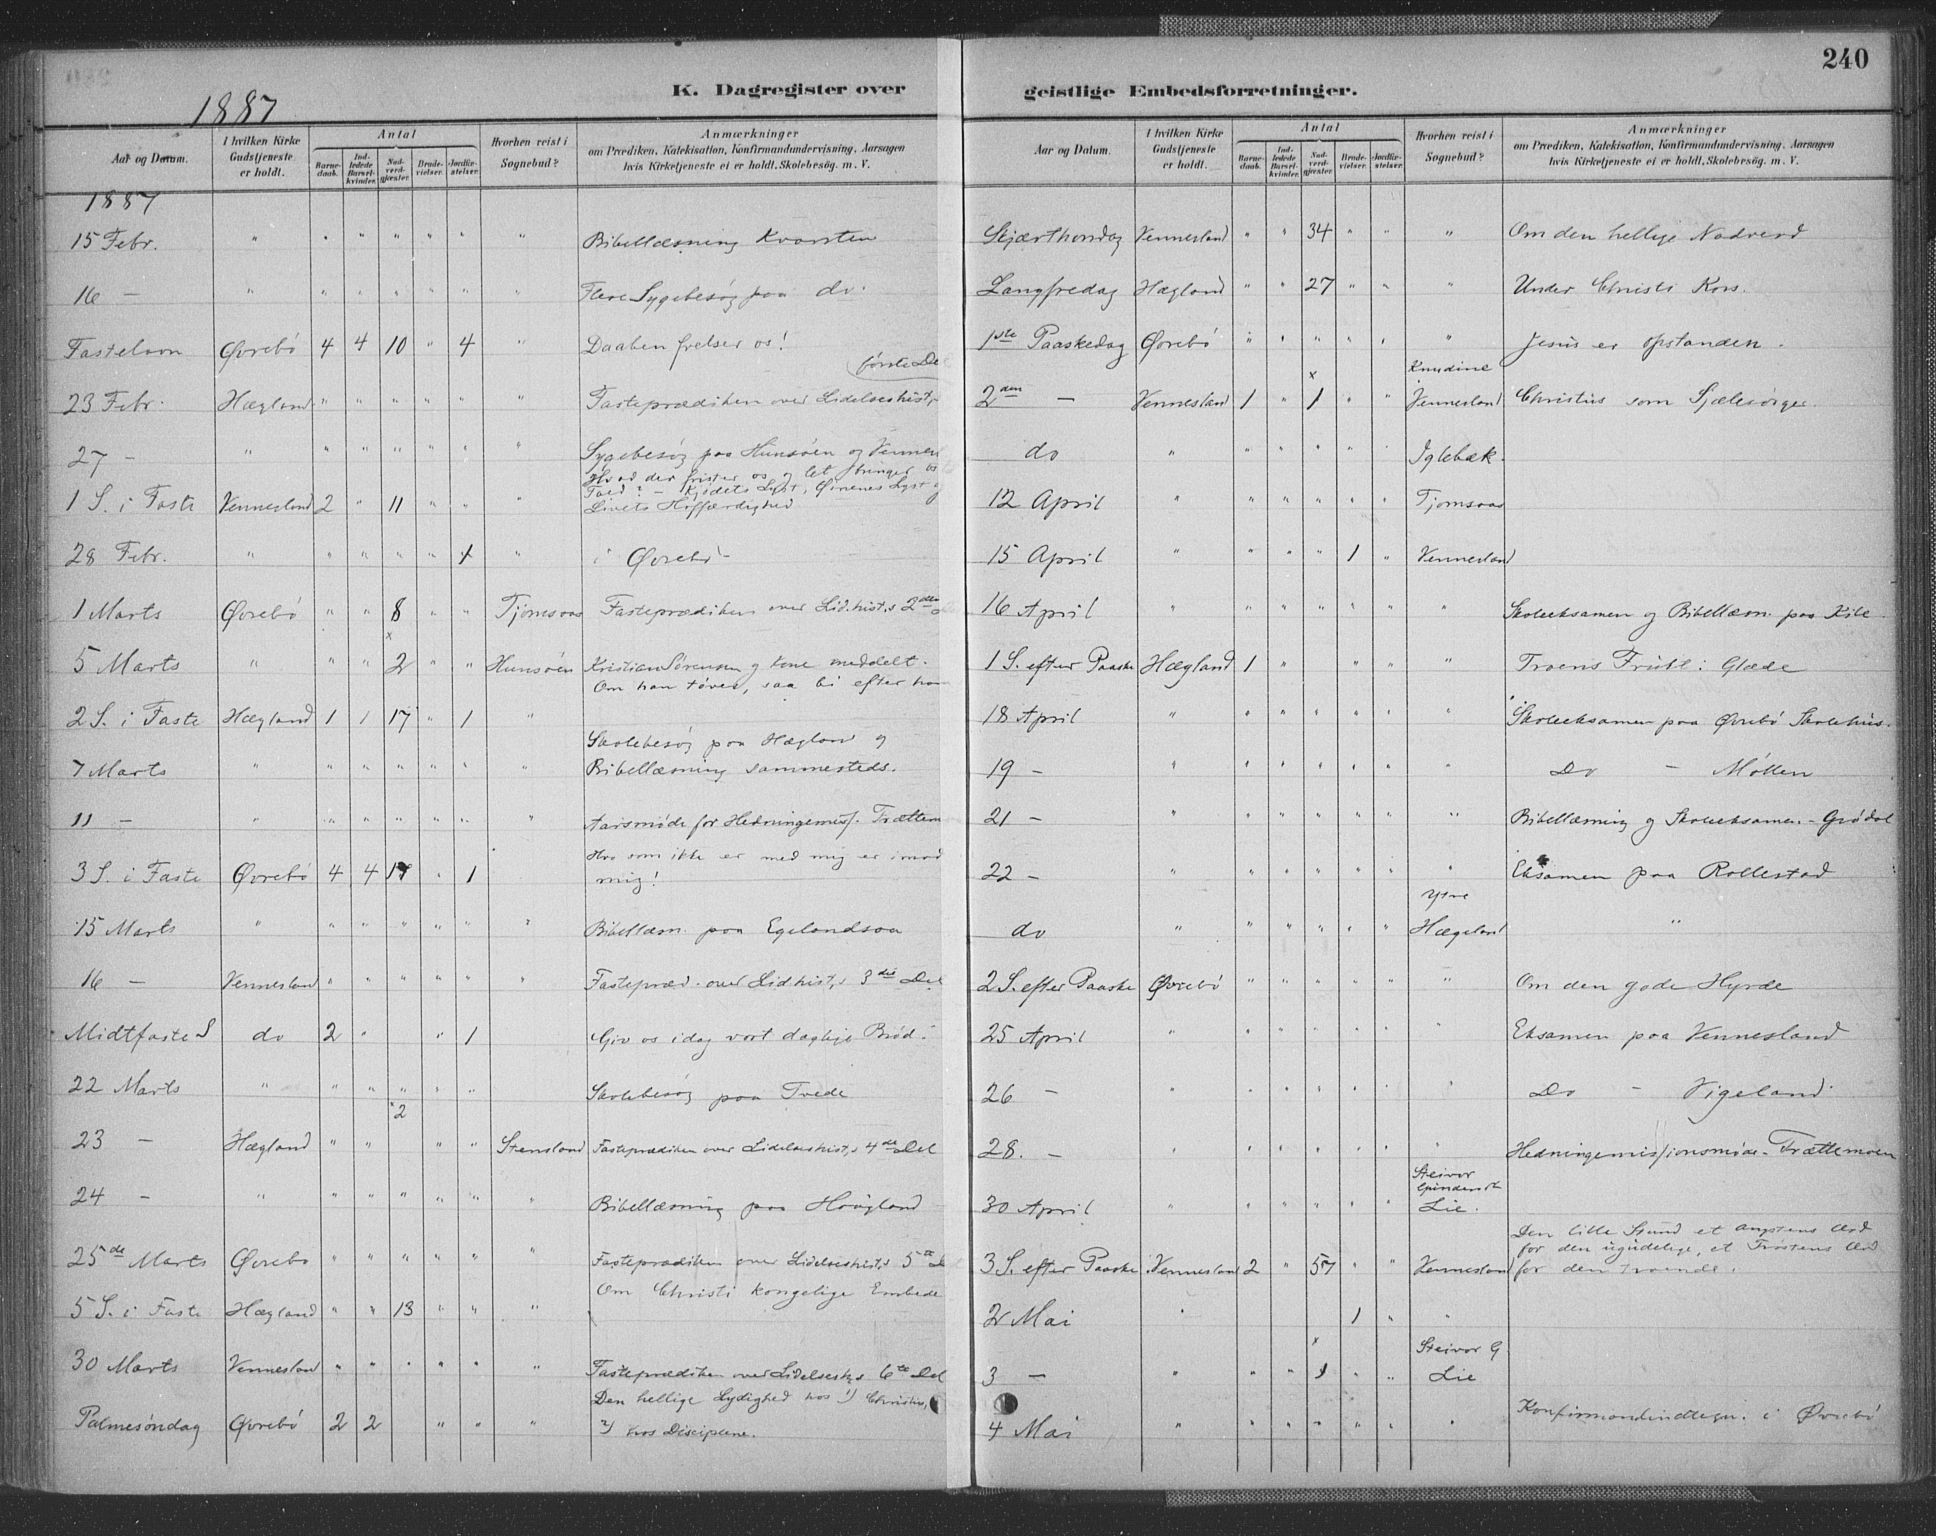 240
K. Dagregister over geistlige Embedsforretninger.
1887
Aar og Datum. I hvilken Kirke Gudstjeneste er holdt. Antal Barnedaab. Indledede Barselkvinder. Nadverdgjæster. Brudevielser. Jordfæstelser. Hvorhen reist i Sognebud? Anmærkninger om Prædiken, Katekisation, Konfirmandundervisning, Aarsagen hvis Kirketjeneste ei er holdt, Skolebesøg. m. V.
1887
15 Febr. " " " " " " " Bibellæsning Kvarsten
16 — " " " " " " " Flere Sygebesøg paa do.
Fastelavn Øvrebø 4 4 10 " 4 " Daaben frelser os!
første Del
23 Febr. Hægland " " " " " " Fasteprædiken over Lidelseshist.s
27 — " " " " " " " Sygebesøg paa Hunsøen og Vennes
Hvad der frister os og let bringer os
1 S. i Faste Vennesland 2 " 11 " " " Fald? — Kjødets Lyst, Øinenes Lyst og
Livets Hoffærdighed
28 Febr. " " " " " 1 " i Øvrebø
1 Marts Øvrebø " " 8 " " Tjomsaas Fasteprædiken over Lid.hist.s 2den
5 Marts " " " x 2 " " Hunsøen Kristian Sørensen og Kone meddelt.
Om han tøver, saa bi efter ham
2 S. i Faste Hægland 1 1 17 " 1 "
Skolebesøg paa Hægland og
7 Marts " " " " " " " Bibellæsning sammesteds.
11 — " " " " " " " Aarsmøde for Hedningemis. Trættem
Hvo som ikke er med mig er imod
3 S. i Faste Øvrebø 4 4 " 1 mig!
15 Marts " " " " " " " Bibellæsn. paa Egelandsaa
16 — Vennesland " " " " " " Fastepræd. over Lidhist.s 3die Del
Midtfaste S do 2 " " 1 Giv os idag vort daglige Brød!
22 Marts " " " " " " Skolebesøg paa Tvede
23 — Hægland " " x 2 " " Stensland Fasteprædiken over Lidelseshist.s 4de Del
24 — " " " " " " " Bibellæsning paa Haugland
25de Marts Øvrebo " " " " " " Fasteprædiken over Lidelseshist.s 5te
Om Christi kongelige Embede
5 S. i Faste Hægland " " 13 " " "
30 Marts Vennesland " " " " " " Fasteprædiken over Lidelsesh.s 6te Del
Den hellige Lydighed hos 1) Christus,
Palmesøndag Øvrebø 2 2 " " " 2) hos Disciplene.
Aar og Datum. I hvilken Kirke Gudstjeneste er holdt. Antal Barnedaab. Indledede Barselkvinder. Nadverdgjæster. Brudevielser. Jordfæstelser. Hvorhen reist i Sognebud? Anmærkninger om Prædiken, Katekisation, Konfirmandundervisning, Aarsagen hvis Kirketjeneste ei er holdt, Skolebesøg. m. V.
Skjærthorsdag Vennesland " " 34 " " " Om den hellige Nadverd
Langfredag Hægland " " 27 " " " Under Christi Kors.
1ste Paaskedag Øvrebø " " " " " " Jesus er opstanden.
2den — Vennesland 1 " x 1 " " Knudine Vennesland Christus som Sjælesørger
do " " " " " " Iglebæk.
12 April " " " " " " Tjomsaas
15 April " " " " 1 " Vennesland
16 April " " " " " " " Skoleeksamen og Bibellæsn. paa Kile
1 S. efter Paaske Hægland 1 " " " " Troens Frukt: Glæde
18 April " " " " " " " Skoleeksamen paa Øvrebø Skolehus.
19 — " " " " " " " Do — Møllen
21 — " " " " " " " Bibellæsning og Skoleeksamen - Grødal
22 — " " " " " " " Eksamen paa Rollestad
do " " " " " " Hægeland "
2 S. efter Paaske Øvrebø " " " " " " Om den gode Hyrde
25 April " " " " " " " Eksamen paa Vennesland
26 — " " " " " " " Do — Vigeland
28. — " " " " " " " Hedningemissionsmøde - Trættemoen
30 April " " " " " " Steivor Lie.
Den lille Stund et Angstens Ord
for den ugudelige, et Trøstens Ord
3 S. efter Paaske Vennesland 2 " 57 " " Vennesland for den troende.
2 Mai " 1 " "
3 — " " " x 1 " " Steivor G. Lie
4 Mai " " " " " " " Konfirmandindtegn. i Øvrebø